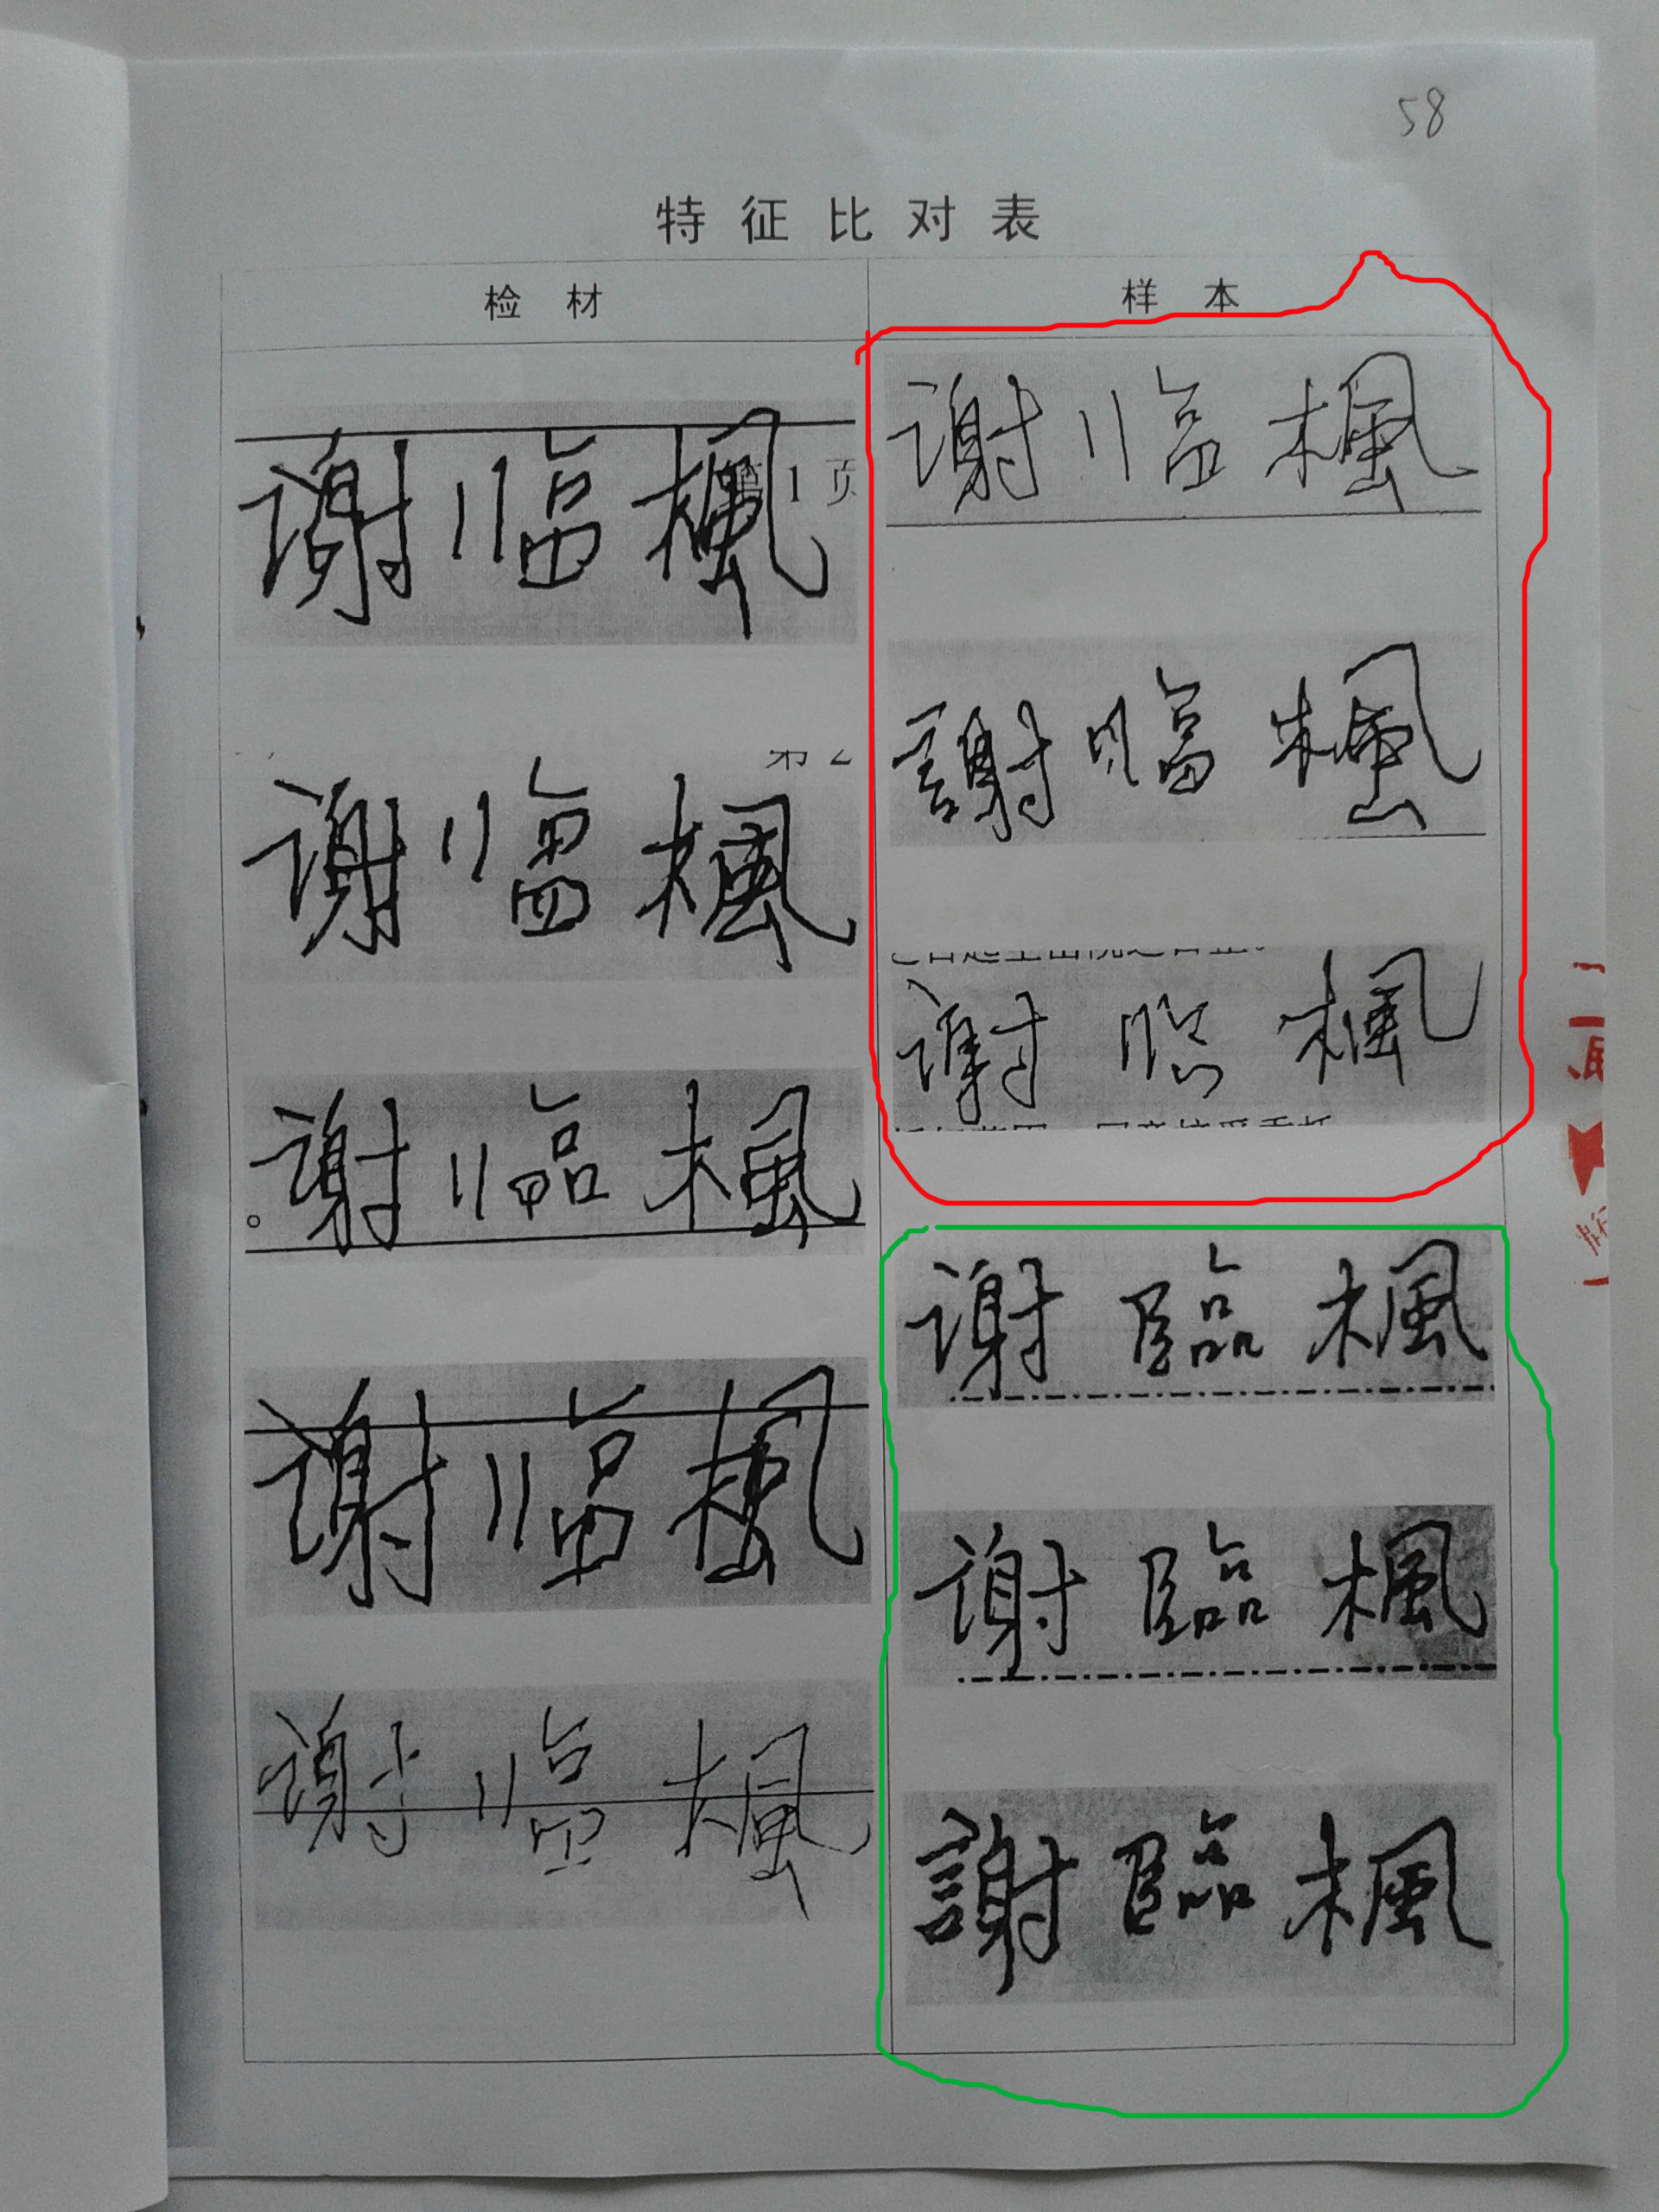 58
特征比对表
检材 样本
谢临楓
第1页
谢临楓
謝临楓
谢临楓
谢临楓
谢临楓
谢临楓
谢臨楓
谢临楓
谢臨楓
谢临楓
謝臨楓